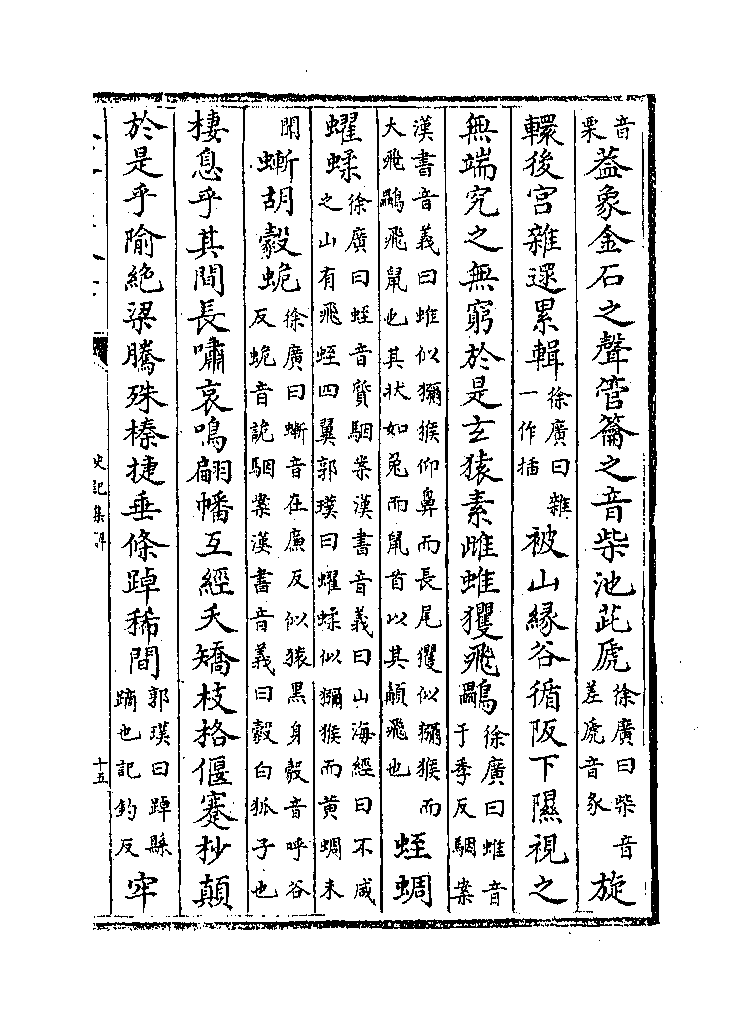 音栗蓋象金石之聲管籥之音柴池茈虒徐廣曰柴音差虒音豸旋
轘後宮雜遝累輯徐廣曰雜一作插被山緣谷循阪下隰視之
無端究之無窮於是玄猿素雌蜼玃飛鸓徐廣曰蜼音于季反駰案
漢書音義曰蜼似獼猴仰鼻而長尾玃似獼猴而大飛鸓飛鼠也其狀如兔而鼠首以其䫇飛也蛭蜩
蠷蝚徐廣曰蛭音質駰案漢書音義曰山海經曰不咸之山有飛蛭四翼郭璞曰蠷蝚似獼猴而黃蜩未
聞螹胡豰蛫徐廣曰螹音在廉反似猿黑身豰音呼谷反蛫音詭駰案漢書音義曰豰白狐子也
棲息乎其間長嘯哀鳴翩幡互經夭矯枝格偃蹇杪顛
於是乎隃絶梁騰殊榛捷垂條踔稀間郭璞曰踔縣蹢也託釣反牢
史記集解
十五